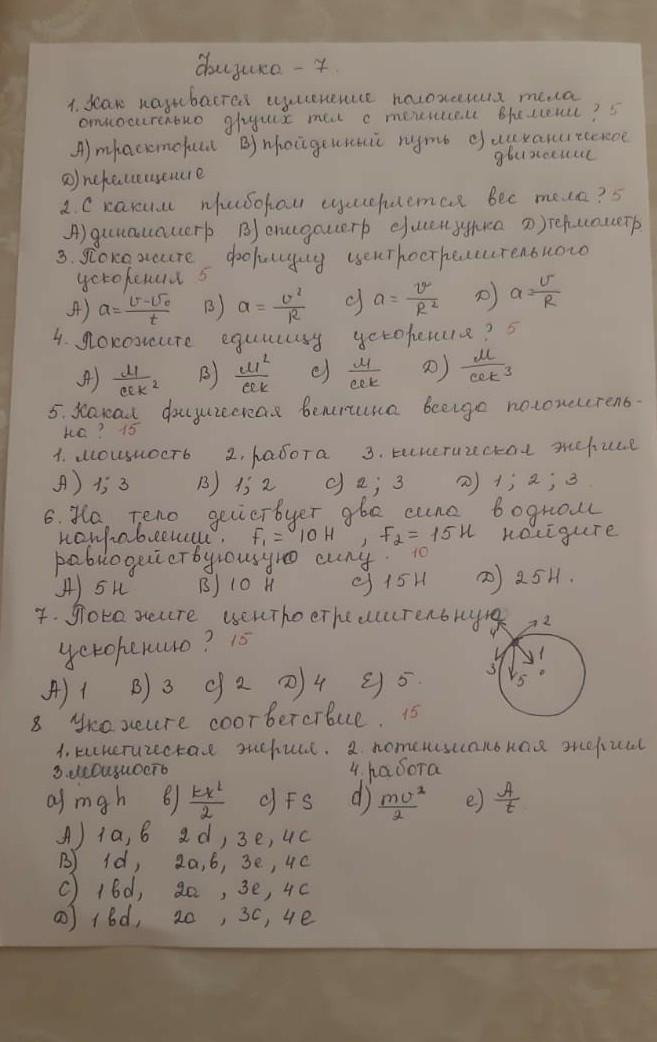 Физика - 7.
1. Как называется изменение положения тела
относительно других тел с течением времени? 5
А) траектория В) пройденный путь С) механическое
движение
D) перемещение
2. С каким прибором измеряется вес тела? 5
А) динамометр В) спидометр С) мензурка D) термометр
3. Покожите формулу центростремительного
ускорения 5
А) a = v-v₀/t В) a = v²/R С) a = v/R² D) a = v/R
4. Покожите единицу ускорения? 5
А) м/сек² В) м²/сек С) м/сек D) м/сек³
5. Какая физическая величина всегда положитель-
на? 15
1. мощность 2. работа 3. кинетическая энергия
А) 1; 3 В) 1; 2 С) 2; 3 D) 1; 2; 3.
6. На тело действует два сила в одном
направлении. F₁ = 10 Н, F₂ = 15 Н найдите
равнодействующую силу. 10
А) 5 Н В) 10 Н С) 15 Н D) 25 Н.
7. Покажите центростремительную
ускорению? 15
4 2 3 1 5 0
А) 1 В) 3 С) 2 D) 4 Е) 5.
8 Укажите соответствие. 15
1. кинетическая энергия. 2. потенциальная энергия
3. мощность 4. работа
a) mgh b) kx²/2 c) FS d) mv²/2 e) A/t
А) 1a, b 2d, 3e, 4c
В) 1d, 2a, b, 3e, 4c
С) 1bd, 2a, 3e, 4c
D) 1bd, 2a, 3c, 4e